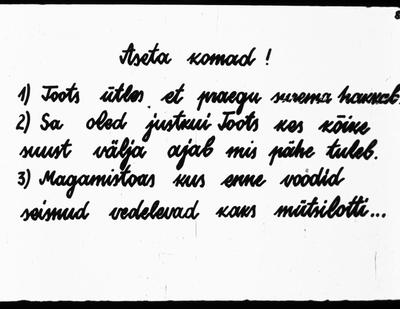 Aseta komad!
1) Toots ütles, et praegu surema hakkab.
2) Sa oled justkui Toots kes kõike
suust välja ajab mis pähe tuleb.
3) Magamistoas kus enne voodid
seisnud vedelevad kaks mütsilotti...
8